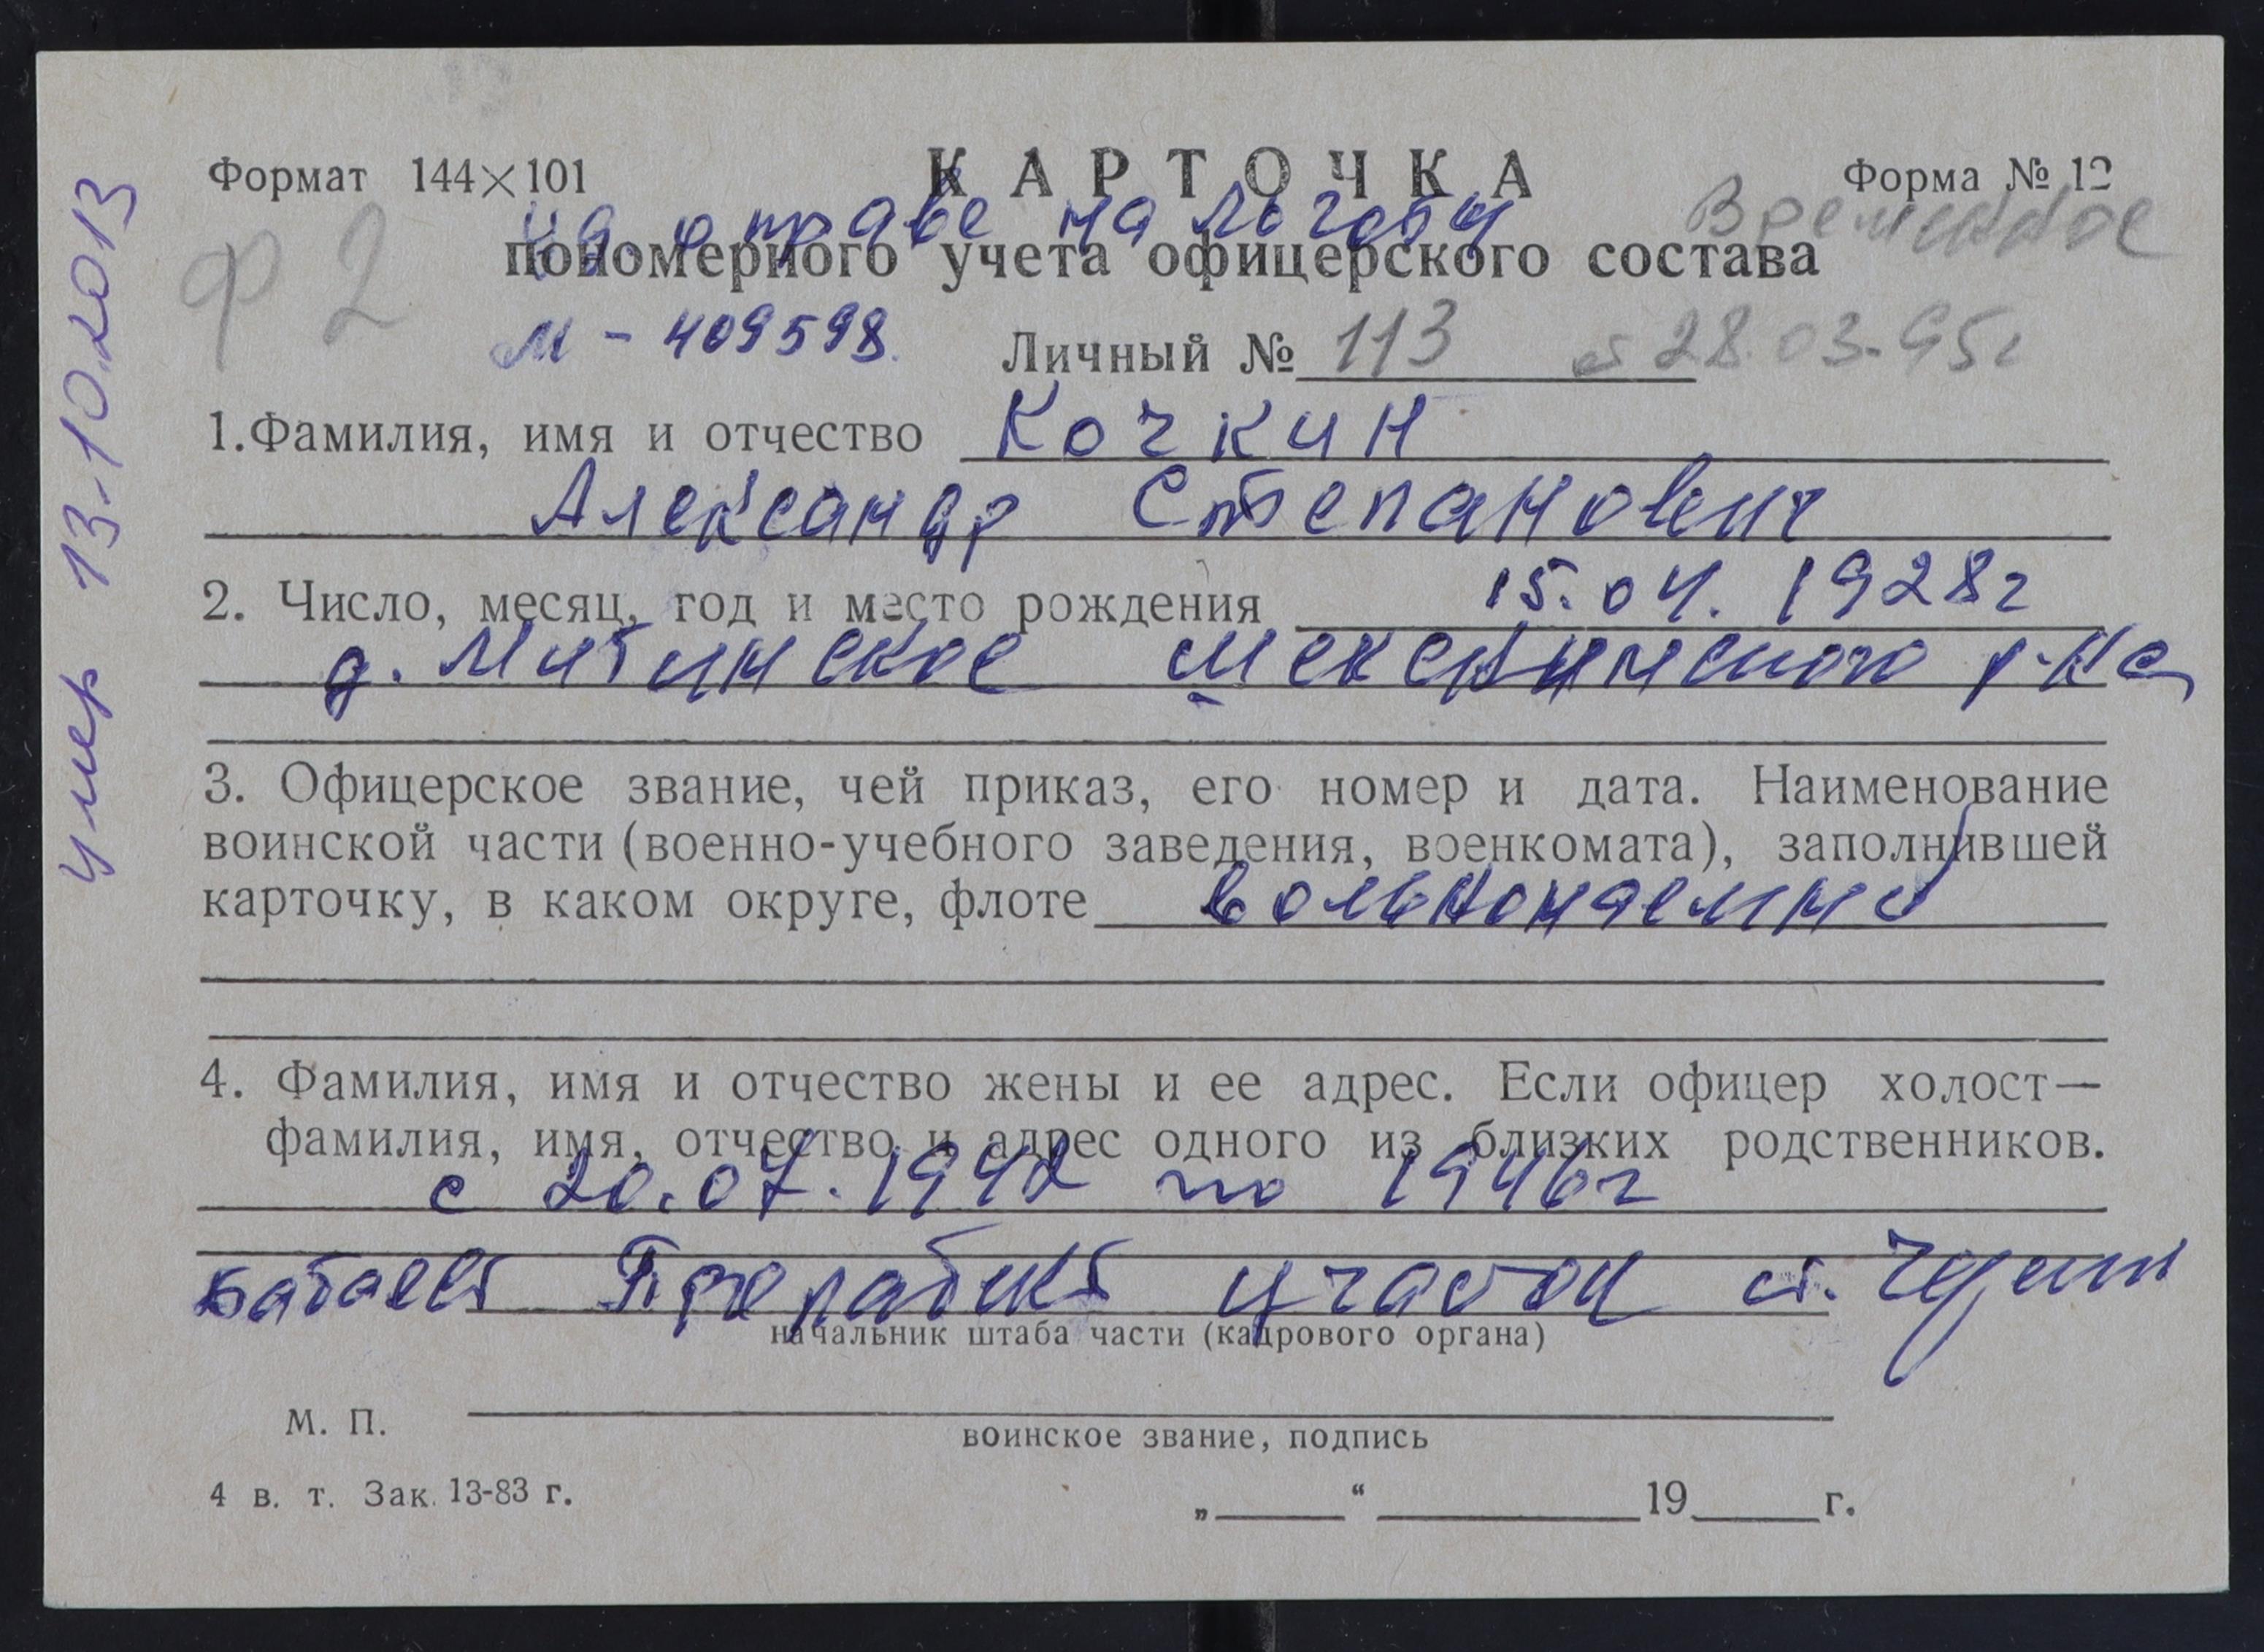 Формат 144×101 КАРТОЧКА Форма № 12
уд. о праве на льготы Временное
Ф 2 пономерного учета офицерского состава
М - 409598. Личный № 113 от 28.03.95г
1. Фамилия, имя и отчество Кочкин
Александр Степанович
2. Число, месяц, год и место рождения 15.04.1928г
д. Митинское Шекснинского р-на
3. Офицерское звание, чей приказ, его номер и дата. Наименование
воинской части (военно-учебного заведения, военкомата), заполнившей
карточку, в каком округе, флоте вольнонаемный
4. Фамилия, имя и отчество жены и ее адрес. Если офицер холост—
фамилия, имя, отчество и адрес одного из близких родственников.
с 20.07.1942 по 1946г
участок ст.
начальник штаба части (кадрового органа)
М. П.
воинское звание, подпись
4 в. т. Зак. 13-83 г. „ “ 19 г.
умер 13.10.2013